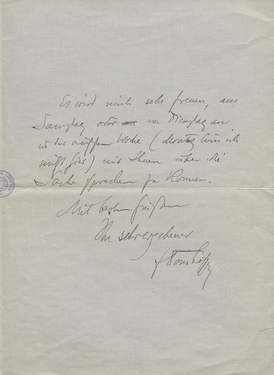 Es wird mich sehr freuen, am
Samstag oder von Dienstag an
in der nächsten Woche (Montag bin ich
nicht hier) mit Ihnen über die
Sache sprechen zu können.
Mit besten Grüßen
Ihr sehr ergebener